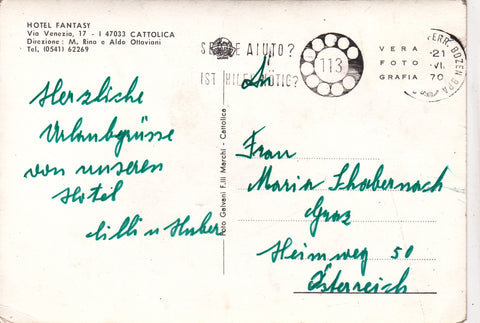 HOTEL FANTASY
Via Venezia, 17 - I 47033 CATTOLICA
Direzione: M. Rino e Aldo Ottaviani
Tel. (0541) 62269
Herzliche
Urlaubgrüsse
von unseren
Hotel
Lilli u Huber
Foto Galvani F.lli Merchi - Cattolica
AIUTO?
IST HILFE NÖTIG?
113
VERA
FOTO
GRAFIA
BOZEN
21
VI.
70
An
Frau
Maria Schabernach
Graz
Heimweg 50
Österreich